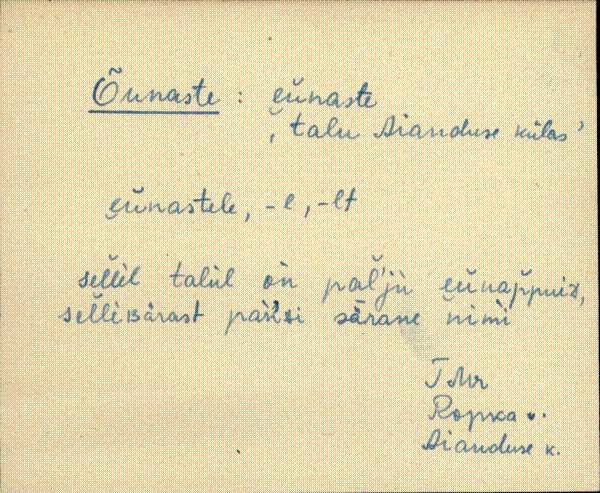 Õunaste : e̮ŭnaste
‚ talu Aianduse külas’
e̮ŭnastele, -l, -lt
sel̆lèl talùl òn pal̆’jù e̮ŭnap̆puiD,
sel̆leBärast paǹ’di särane nimi
TMr
Ropka v.
Aianduse k.